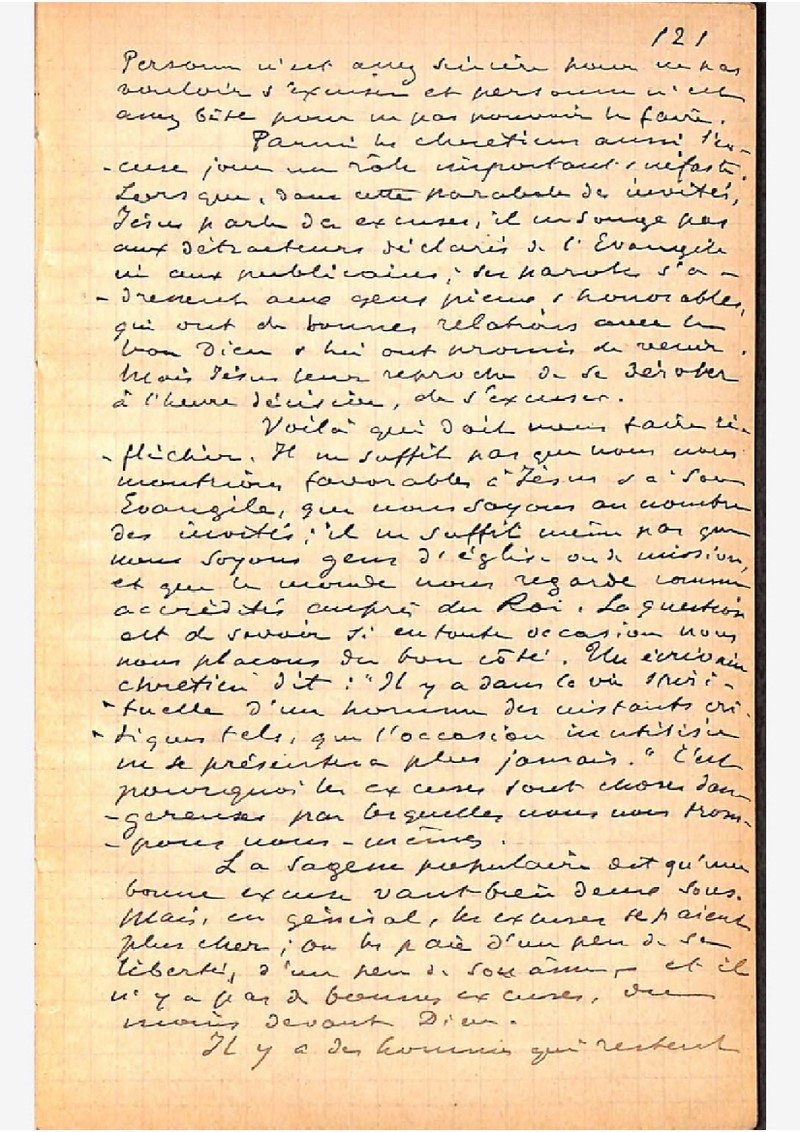 121
Personne n'est assez sincère pour ne pas
vouloir s'excuser et personne n'est
assez bête pour ne pas pouvoir le faire.
Parmi les chrétiens aussi l'ex-
-cuse joue un rôle important & néfaste.
Lorsque, dans cette parabole des invités,
Jésus parle des excuses, il ne songe pas
aux détracteurs déclarés de l'Evangile
ni aux publicains; ses paroles s'a-
-dressent aux gens pieux & honorables,
qui ont de bonnes relations avec le
bon Dieu & lui ont promis de venir.
Mais Jésus leur reproche de se dérober
à l'heure décisive, de s'excuser.
Voilà qui doit nous faire ré-
-fléchir. Il ne suffit pas que nous nous
montrions favorables à Jésus & à Son
Evangile, que nous soyons au nombre
des invités; il ne suffit même pas que
nous soyons gens d'église ou de mission,
et que le monde nous regarde comme
accrédités auprès du Roi. La question
est de savoir si en toute occasion nous
nous plaçons du bon côté. Un écrivain
chrétien dit: "Il y a dans la vie spiri-
-tuelle d'un homme des instants cri-
-tiques tels, que l'occasion inutilisée
ne se présentera plus jamais." C'est
pourquoi les excuses sont choses dan-
-gereuses par lesquelles nous nous trom-
-pons nous-mêmes.
La sagesse populaire dit qu'une
bonne excuse vaut bien deux sous.
Mais, en général, les excuses se paient
plus cher; on les paie d'un peu de sa
liberté, d'un peu de son âme, - et il
n'y a pas de bonnes excuses, du
moins devant Dieu.
Il y a des hommes qui restent